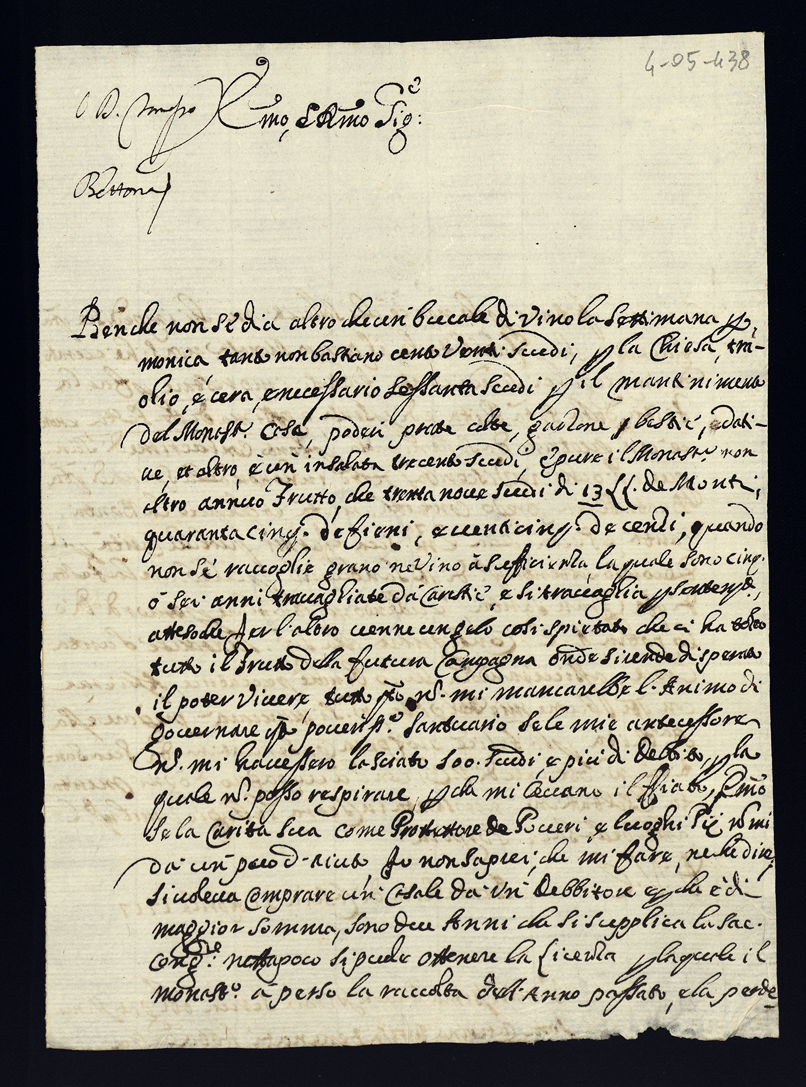 4-05-438
Emo, e Rmo Sig:e
Bettona
Benche non se dia altro che un bocale di vino la settimana p
monica tanto non bastano cento venti scudi, p la Chiesa, tra
olio, e cera, e necessario sessanta scudi p il mantinimento
del Monast.o Case, poderi prate colte, garzone p bestie, e dati-
ve, et altro, e un insalata trecento scudi, e pure il Monast.o non
altro annuo Frutto, che trenta nove scudi di 13 LL. de Monti,
quaranta cinq. de fieni, e venticinq. de censi, quando
non se raccoglie grano ne vino à sufficienza, la quale sono cinq.
ò sei anni travagliate da Carestie, e si travaglia
attesoche Jer l'altro venne un gelo così spietato che ci ha tolto
tutto il Frutto della futura Campagna onde si rende disperato
il poter vivere, tutto q.to n. mi mancarebbe l'Animo di
governare q.to poveriss.o Santuario se le mie antecessore
n. mi havessero lasciato 500. scudi, e più di Debbito, p la
quale n. posso respirare, p che mi levano il fiato, Emo
se la Carità sua come Protettore de Poveri e luoghi Pij n. mi
dà un poco d'aiuto, Io non saprei, che mi fare, ne che dire,
si voleva comprare un Casale da un Debbitore p che è di
maggior somma, sono due Anni che si supplica la Sac.
Cong.ne ne tampoco si puole ottenere la licenza p la quale il
monast.o à perso la raccolta dell'Anno passato, e la perde